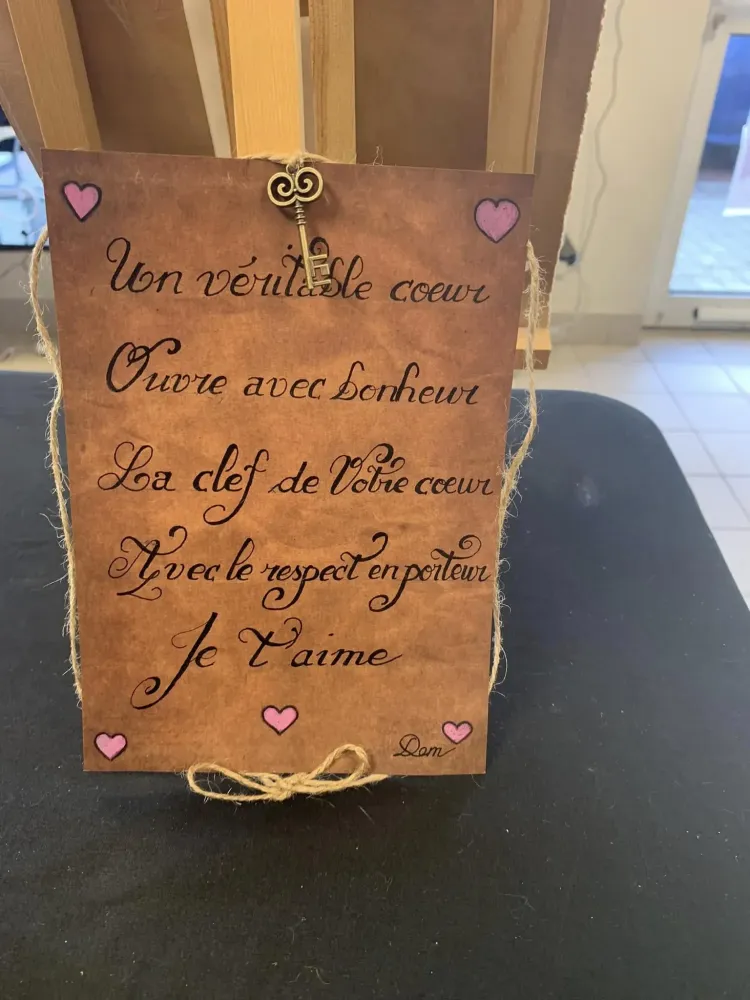 Un véritable coeur
Ouvre avec bonheur
La clef de Votre coeur
Avec le respect en porteur
Je t'aime
Dom